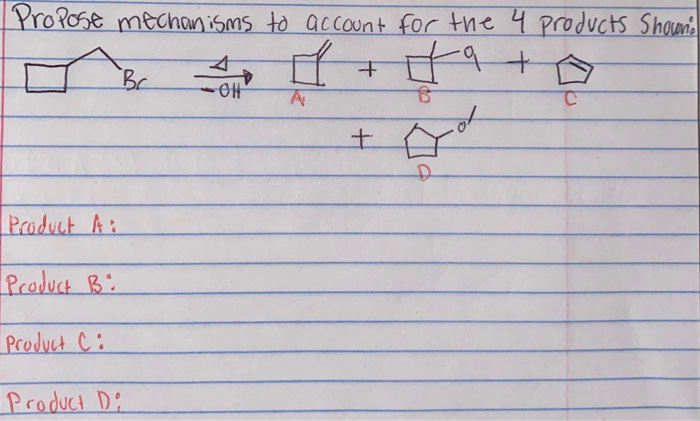 Propose mechanisms to account for the 4 products shown:
Br Δ -OH A + B + C
+ D
Product A:
Product B:
Product C:
Product D: